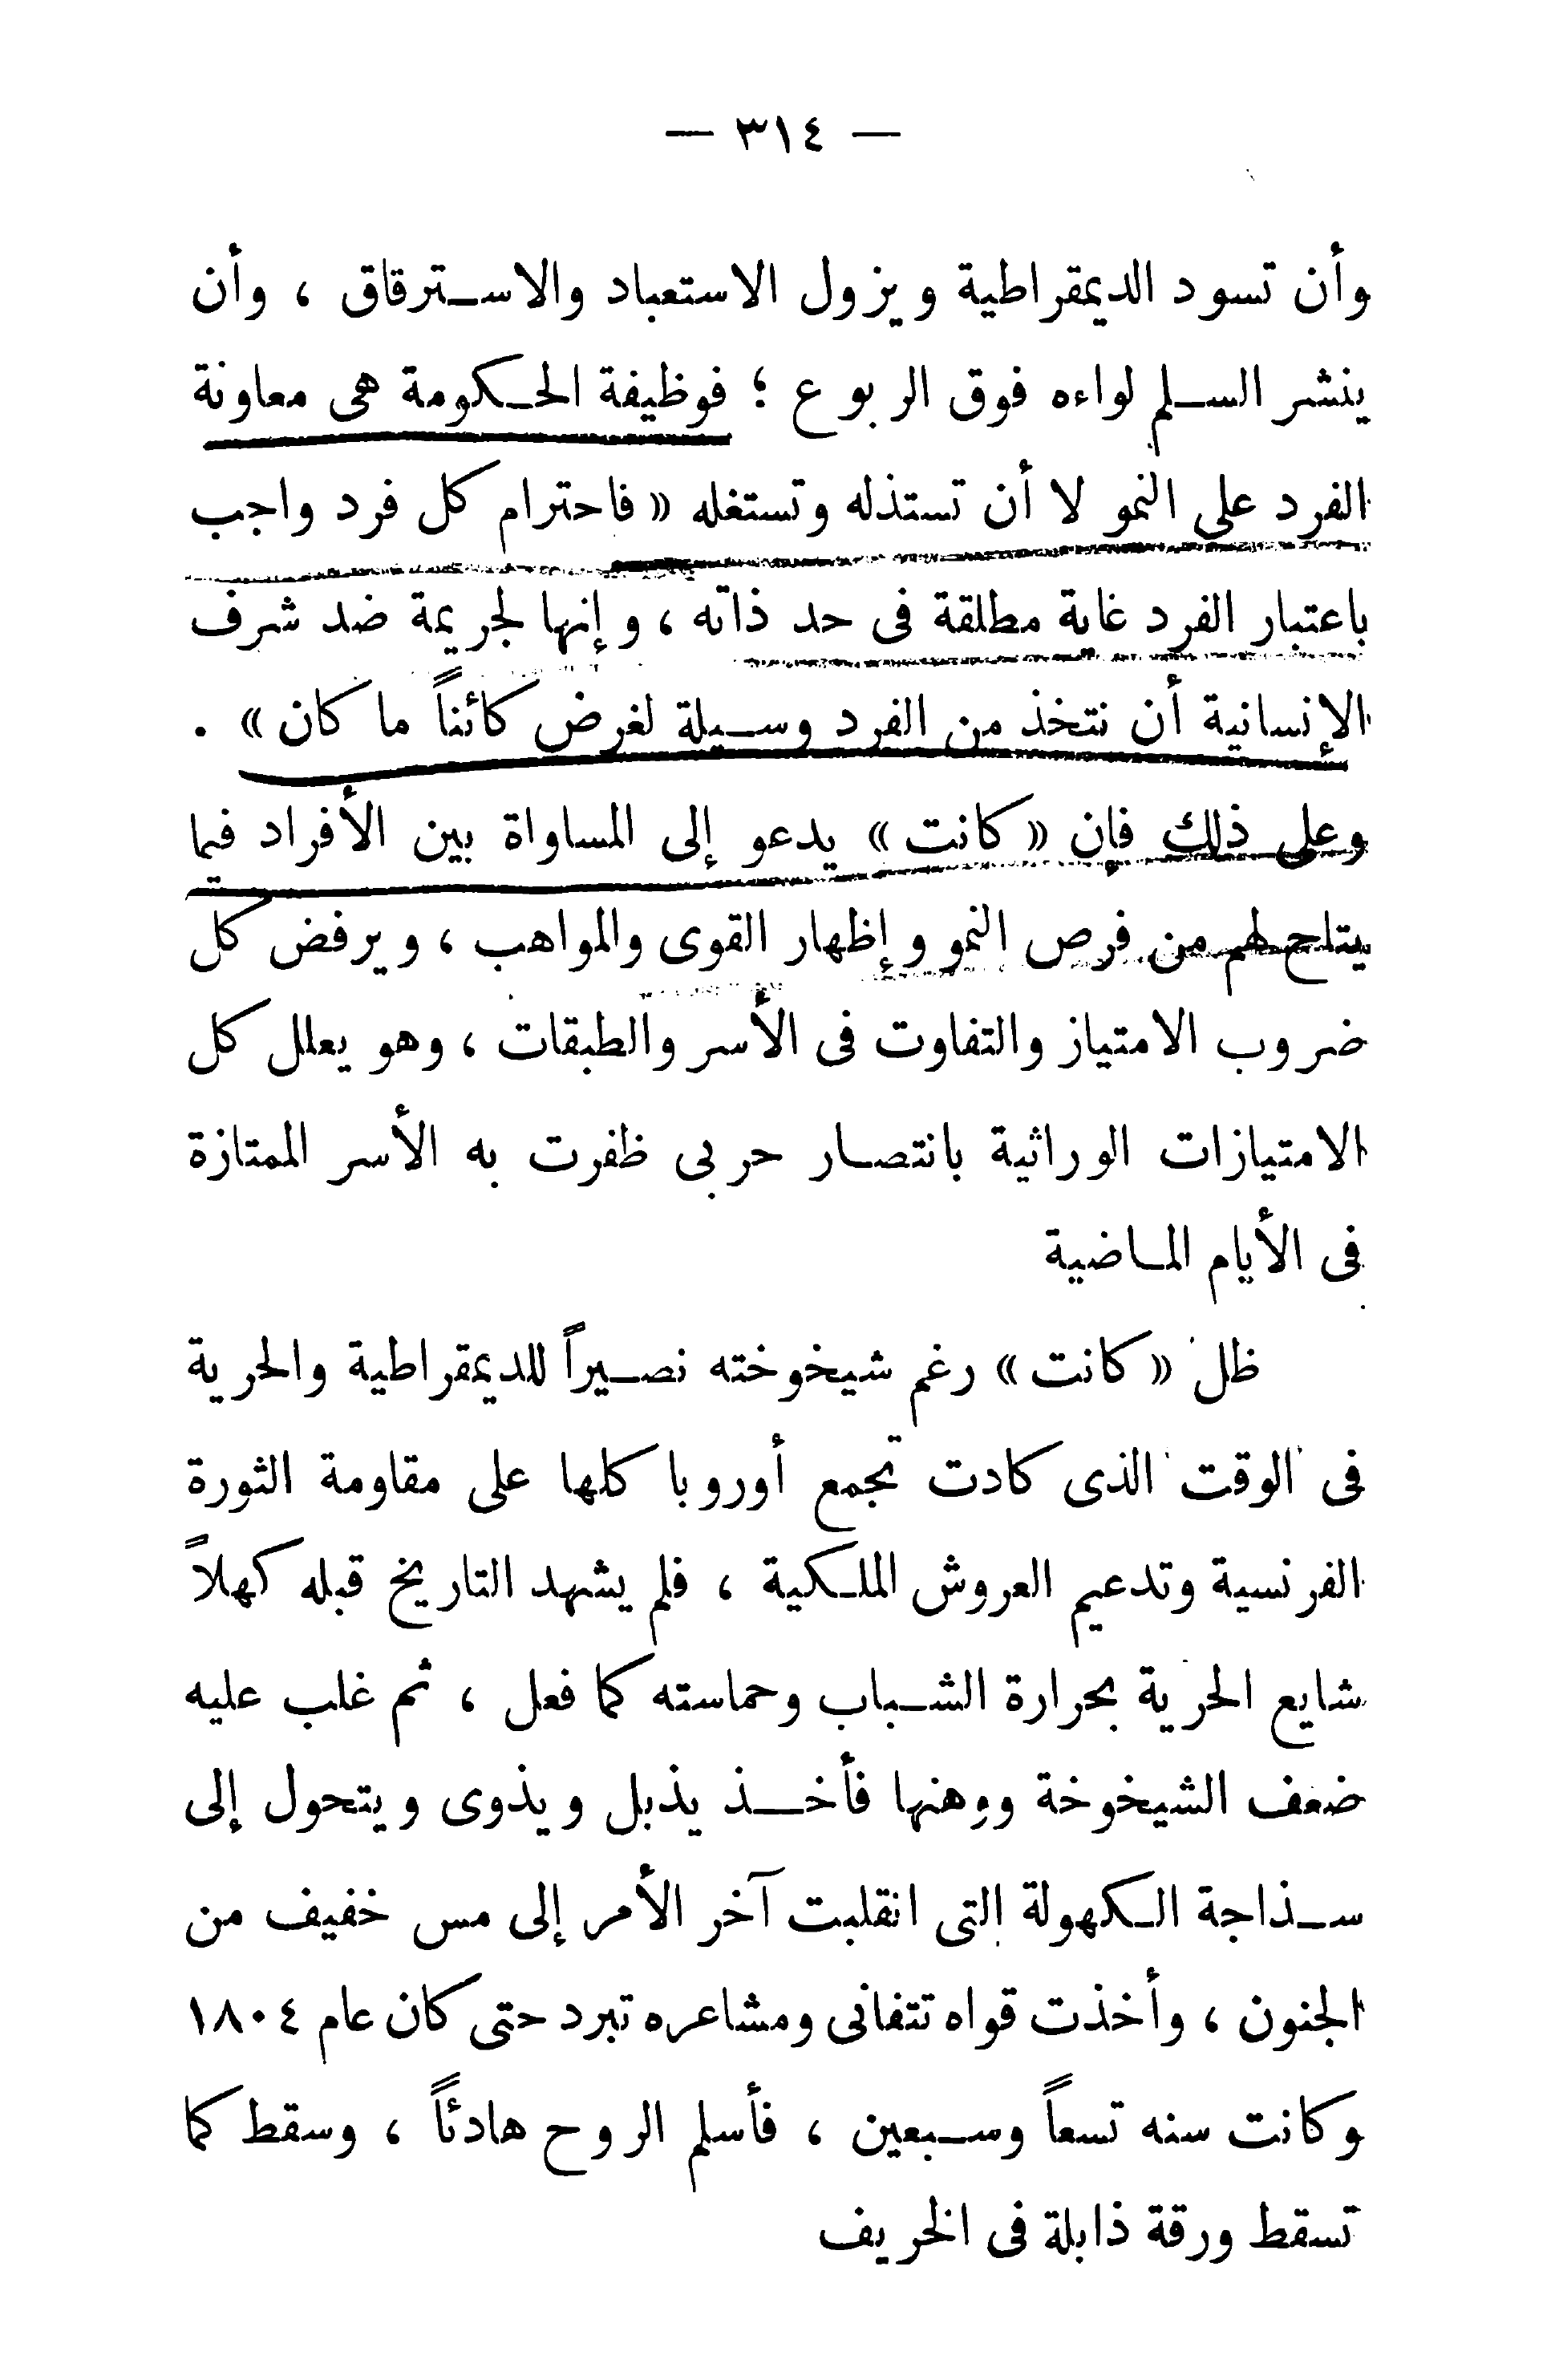 — ٣١٤ —
وأن تسود الديمقراطية ويزول الاستعباد والاسترقاق ، وأن
ينشر السلم لواءه فوق الربوع ؛ فوظيفة الحكومة هى معاونة
الفرد على النمو لا أن تستذله وتستغله « فاحترام كل فرد واجب
باعتبار الفرد غاية مطلقة فى حد ذاته ، وإنها لجريمة ضد شرف
الإنسانية أن نتخذ من الفرد وسيلة لغرض كائناً ما كان » .
وعلى ذلك فإن « كانت » يدعو إلى المساواة بين الأفراد فيما
يتاح لهم من فرص النمو وإظهار القوى والمواهب ، ويرفض كل
ضروب الامتياز والتفاوت فى الأسر والطبقات ، وهو يعلل كل
الامتيازات الوراثية بانتصار حربى ظفرت به الأسر الممتازة
فى الأيام الماضية
ظل « كانت » رغم شيخوخته نصيراً للديمقراطية والحرية
فى الوقت الذى كادت تجمع أوروبا كلها على مقاومة الثورة
الفرنسية وتدعيم العروش الملكية ، فلم يشهد التاريخ قبله كهلاً
شايع الحرية بحرارة الشباب وحماسته كما فعل ، ثم غلب عليه
ضعف الشيخوخة ووهنها فأخذ يذبل ويذوى ويتحول إلى
سذاجة الكهولة التى انقلبت آخر الأمر إلى مس خفيف من
الجنون ، وأخذت قواه تتفانى ومشاعره تبرد حتى كان عام ١٨٠٤
وكانت سنه تسعاً وسبعين ، فأسلم الروح هادئاً ، وسقط كما
تسقط ورقة ذابلة فى الخريف